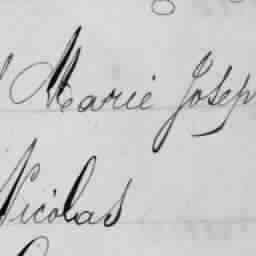 Marie Josep
Nicolas